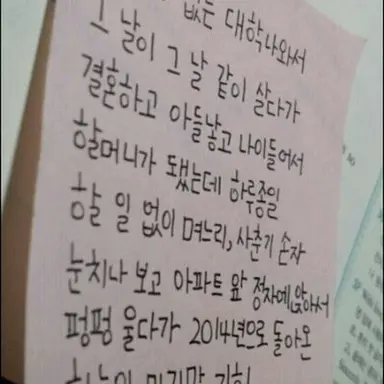 없는 대학나와서
그 날이 그 날 같이 살다가
결혼하고 아들낳고 나이들어서
할머니가 됐는데 하루종일
할 일 없이 며느리, 사춘기 손자
눈치나 보고 아파트 앞 정자에 앉아서
펑펑 울다가 2014년으로 돌아온